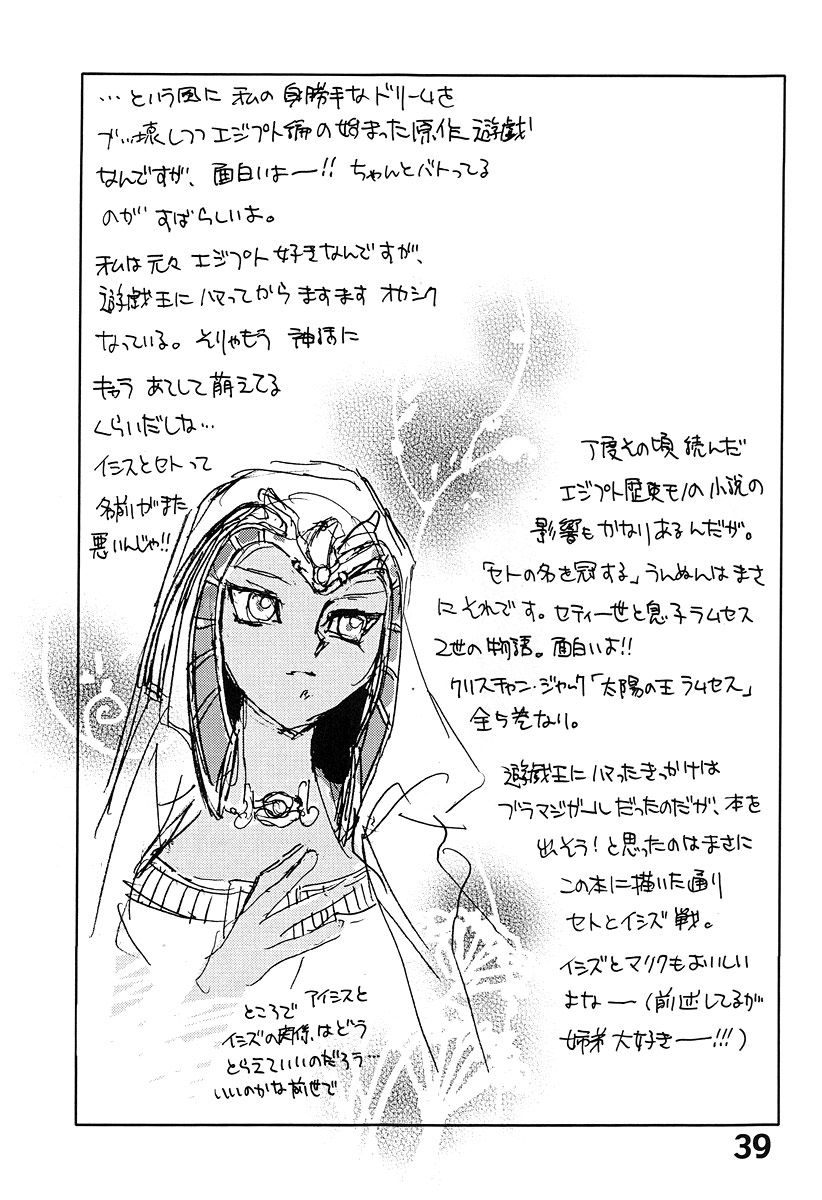 …という風に 私の身勝手なドリームを
ブッ壊しつつエジプト編の始まった原作遊戯
なんですが、面白いよー!! ちゃんとバトってる
のが すばらしいよ。
私は元々エジプト好きなんですが、
遊戯王にハマってから ますます オカシク
なっている。そりゃもう 神話に
キャラ あてして萌えてる
くらいだしな…
イシスとセトって
名前がまた
悪いんじゃ!!
丁度その頃 読んだ
エジプト歴史モノの小説の
影響もかなりあるんだが。
「セトの名を冠する」うんぬんはまさ
にそれです。セティ一世と息子ラムセス
2世の物語。面白いよ!!
クリスチャン・ジャック「太陽の王 ラムセス」
全5巻なり。
遊戯王にハマったきっかけは
ブラマジガールだったのだが、本を
出そう!と思ったのはまさに
この本に描いた通り
セトとイシズ戦。
イシズとマリクもおいしい
よなー(前述してるが
姉弟大好きー!!!)
ところで アイシスと
イシズの関係はどう
とらえていいのだろう…
いいのかな前世で
39